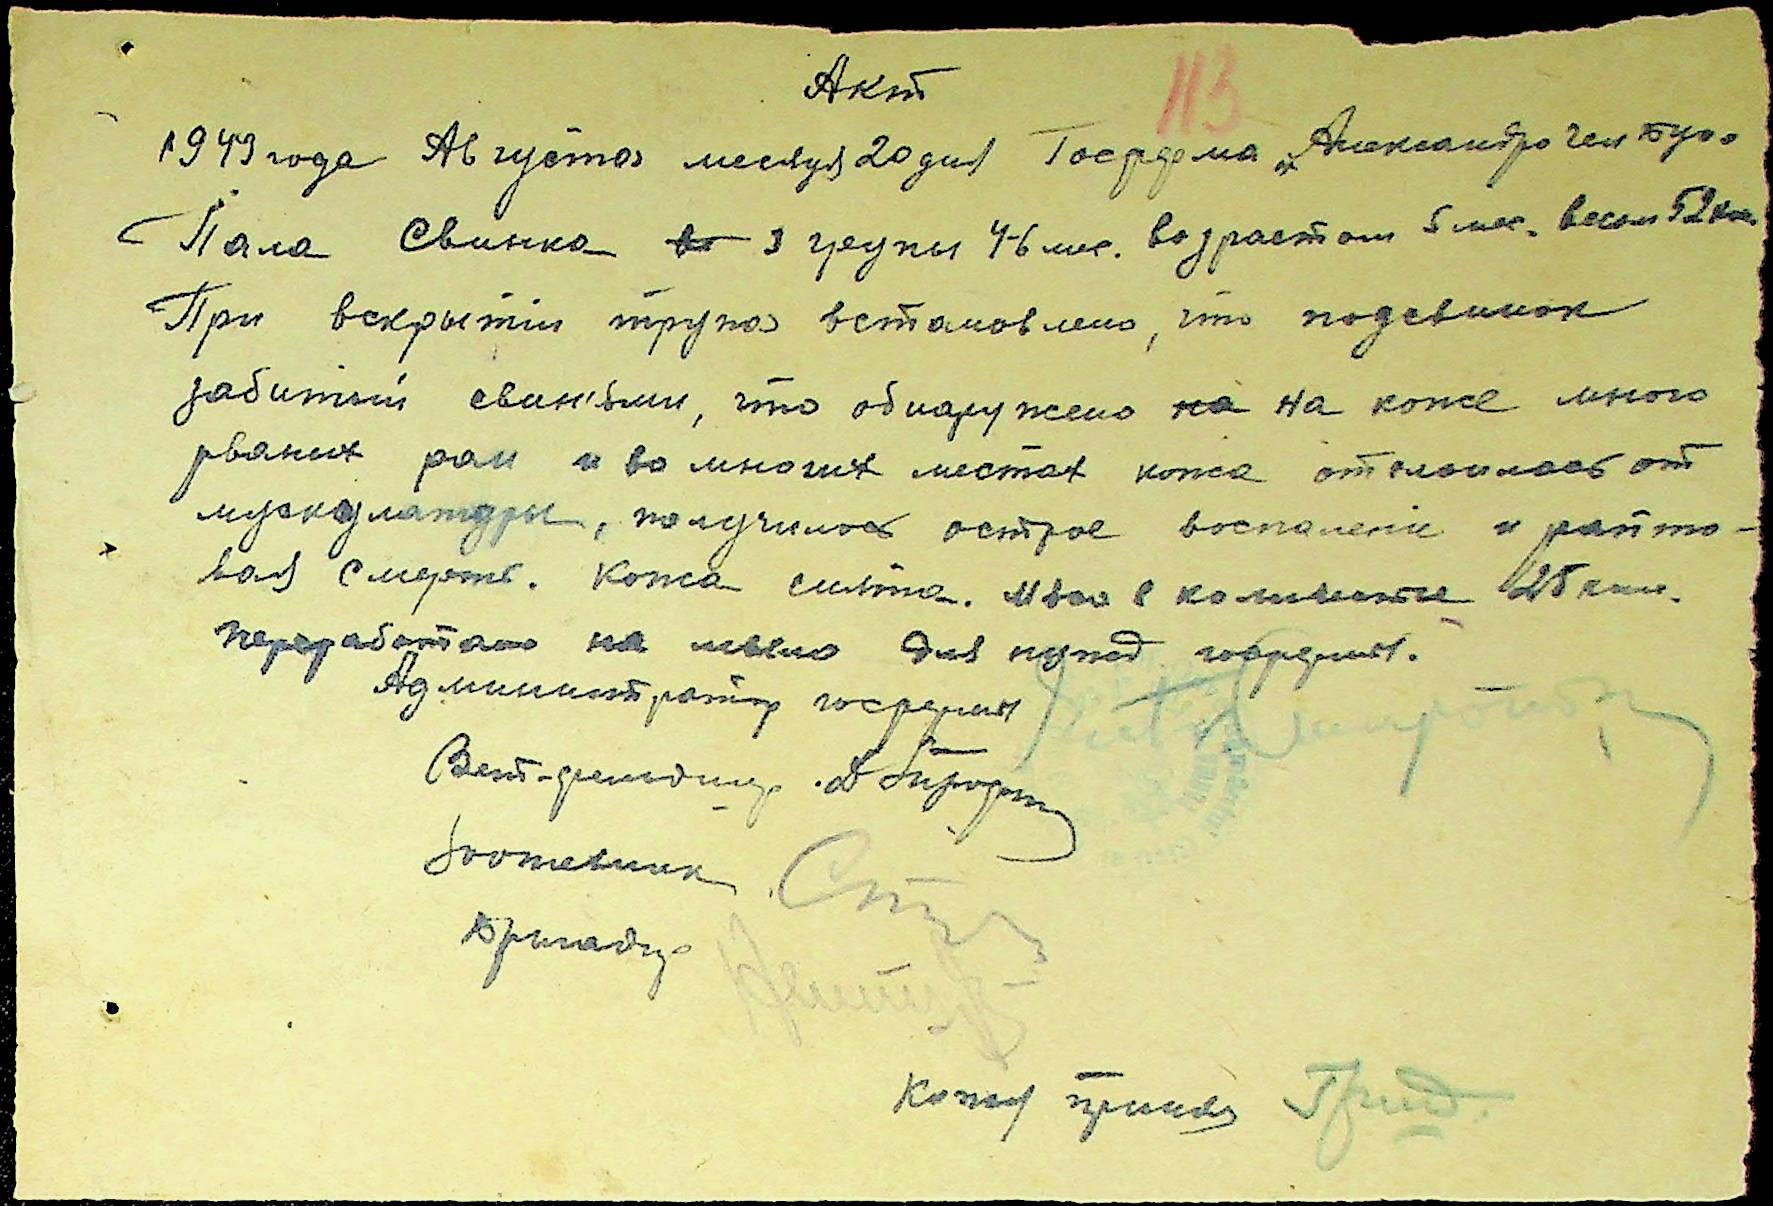 Акт
113
1943 года Августа месяця 20 дня Госферма „Александро
Пала Свинка з групы 4-6 мес. возрастом 5 мес. весом 52 клг.
При вскрытіи трупа встановлено, что подсвинок
забитый свин'ями, что обнаружено на На коже много
рваних ран и во многих местах кожа отслоилась от
мускулатуры, получилось острое воспаленіе и рапто-
вая смерть. Кожа снята. Мясо в количестве 25 клг.
переработано на мыло для нужд госфермы.
Администратор госфермы
Вет-фельдшер
Зоотехник
Бригадир
Кожу принял